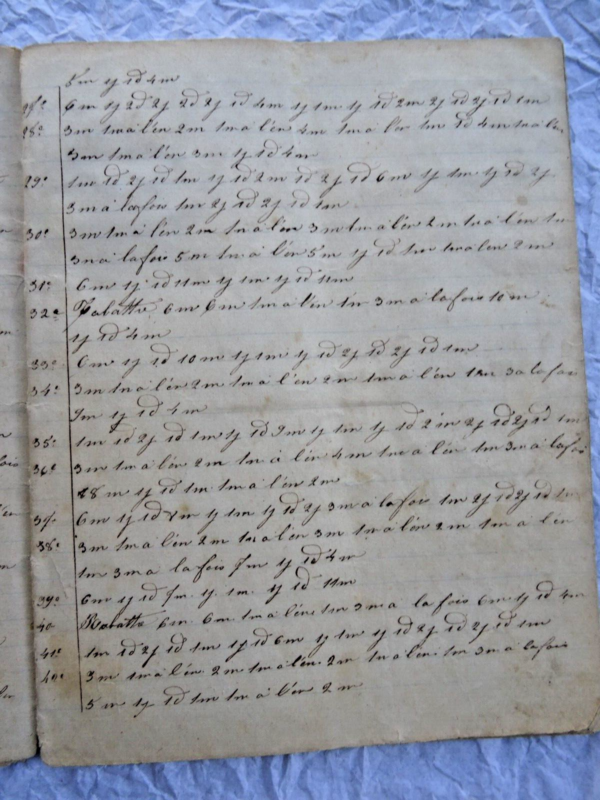 5m y 1d 4m
6m y 2d 2j 2d 2j 1d 4m y 1m y 1d 2m 2j 1d 2j 1d 1m
28e 3m 1m à l'en 2m 1m à l'en 4m 1m à l'en 1m 1d 4m 1m à l'en
3m 1m à l'en 3m y 1d 4m
29e 1m 1d 2j 1d 1m y 1d 2m 1d 2j 1d 6m y 1m y 1d 2j
3m à la fois 1m 2j 1d 2j 1d 1m
30e 3m 1m à l'en 2m 1m à l'en 3m 1m à l'en 2m 1m à l'en 1m
3m à la fois 5m 1m à l'en 5m y 1d 1m 1m à l'en 2m
31e 6m y 1d 11m y 1m y 1d 11m
32e Rabatte 6m 6m 1m à l'en 1m 3m à la fois 10m
y 1d 4m
33e 6m y 1d 10m y 1m y 1d 2j 1d 2j 1d 1m
34e 3m 1m à l'en 2m 1m à l'en 2m 1m à l'en 1m 3 à la fois
9m y 1d 4m
35e 1m 1d 2j 1d 1m y 1d 9m y 1m y 1d 2m 2j 1d 2j 1d 1m
36e 3m 1m à l'en 2m 1m à l'en 4m 1m à l'en 1m 3m à la fois
8m y 1d 1m 1m à l'en 2m
37e 6m y 1d 8m y 1m y 1d 2j 3m à la fois 1m 2j 1d 2j 1d 1m
38e 3m 1m à l'en 2m 1m à l'en 3m 1m à l'en 2m 1m à l'en
1m 3m à la fois 7m y 1d 4m
39e 6m y 1d 7m y 1m y 1d 11m
40 Rabatte 6m 6m 1m à l'en 1m 3m à la fois 6m y 1d 4m
41e 1m 1d 2j 1d 1m y 1d 6m y 1m y 1d 2j 1d 2j 1d 1m
3m 1m à l'en 2m 1m à l'en 2m 1m à l'en 1m 3m à la fois
5m y 1d 1m 1m à l'en 2m